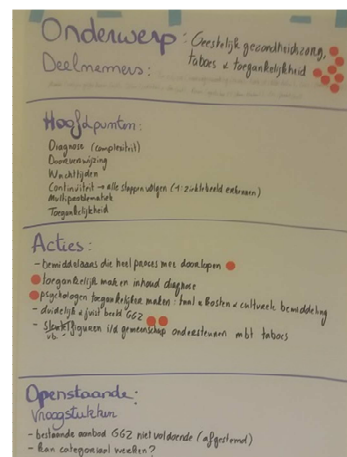 Onderwerp: Geestelijk gezondheidszorg,
taboes & toegankelijkheid
Deelnemers:
Hoofdpunten:
Diagnose (complexiteit)
Doorverwijzing
Wachttijden
Continuïteit → alle stappen volgen (1: ziektebeeld erkennen)
Multiproblematiek
Toegankelijkheid
Acties:
- bemiddelaars die heel proces mee doorlopen
toegankelijk maken inhoud diagnose
psychologen toegankelijker maken: taal & kosten & culturele bemiddeling
- duidelijk & juist beeld GGZ
- sleutelfiguren i/d gemeenschap ondersteunen mbt taboes
vb.
Openstaande:
Vraagstukken
- bestaande aanbod GGZ niet voldoende (afgestemd)
- kan categoriaal werken?